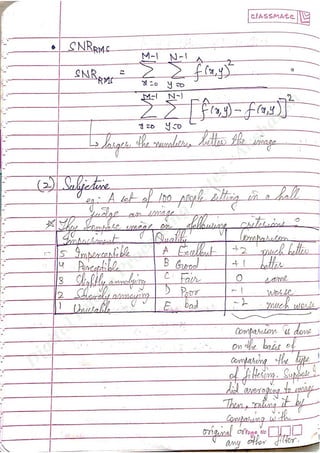 classmate
• SNR RMS
M-1 N-1
SNR RMS = Σ Σ f̂(x,y)²
x=0 y=0
M-1 N-1
Σ Σ [f̂(x,y) - f(x,y)]²
x=0 y=0
↳ larger the number, better the image
(2) Subjective
eg:- A set of 100 people sitting in a hall
judge an image
* They compare image on following criterions:
Impairment Quality Comparison
5 Imperceptible A Excellent +2 much better
4 Perceptible B Good +1 better
3 Slightly annoying C Fair 0 same
2 Strongly annoying D Poor -1 worse
1 Unusable E bad -2 much worse
comparison is done
on the basis of
comparing the type
of filtering. Suppose I
did averaging to image
Then, rating it by
comparing with
original or
any other filter.